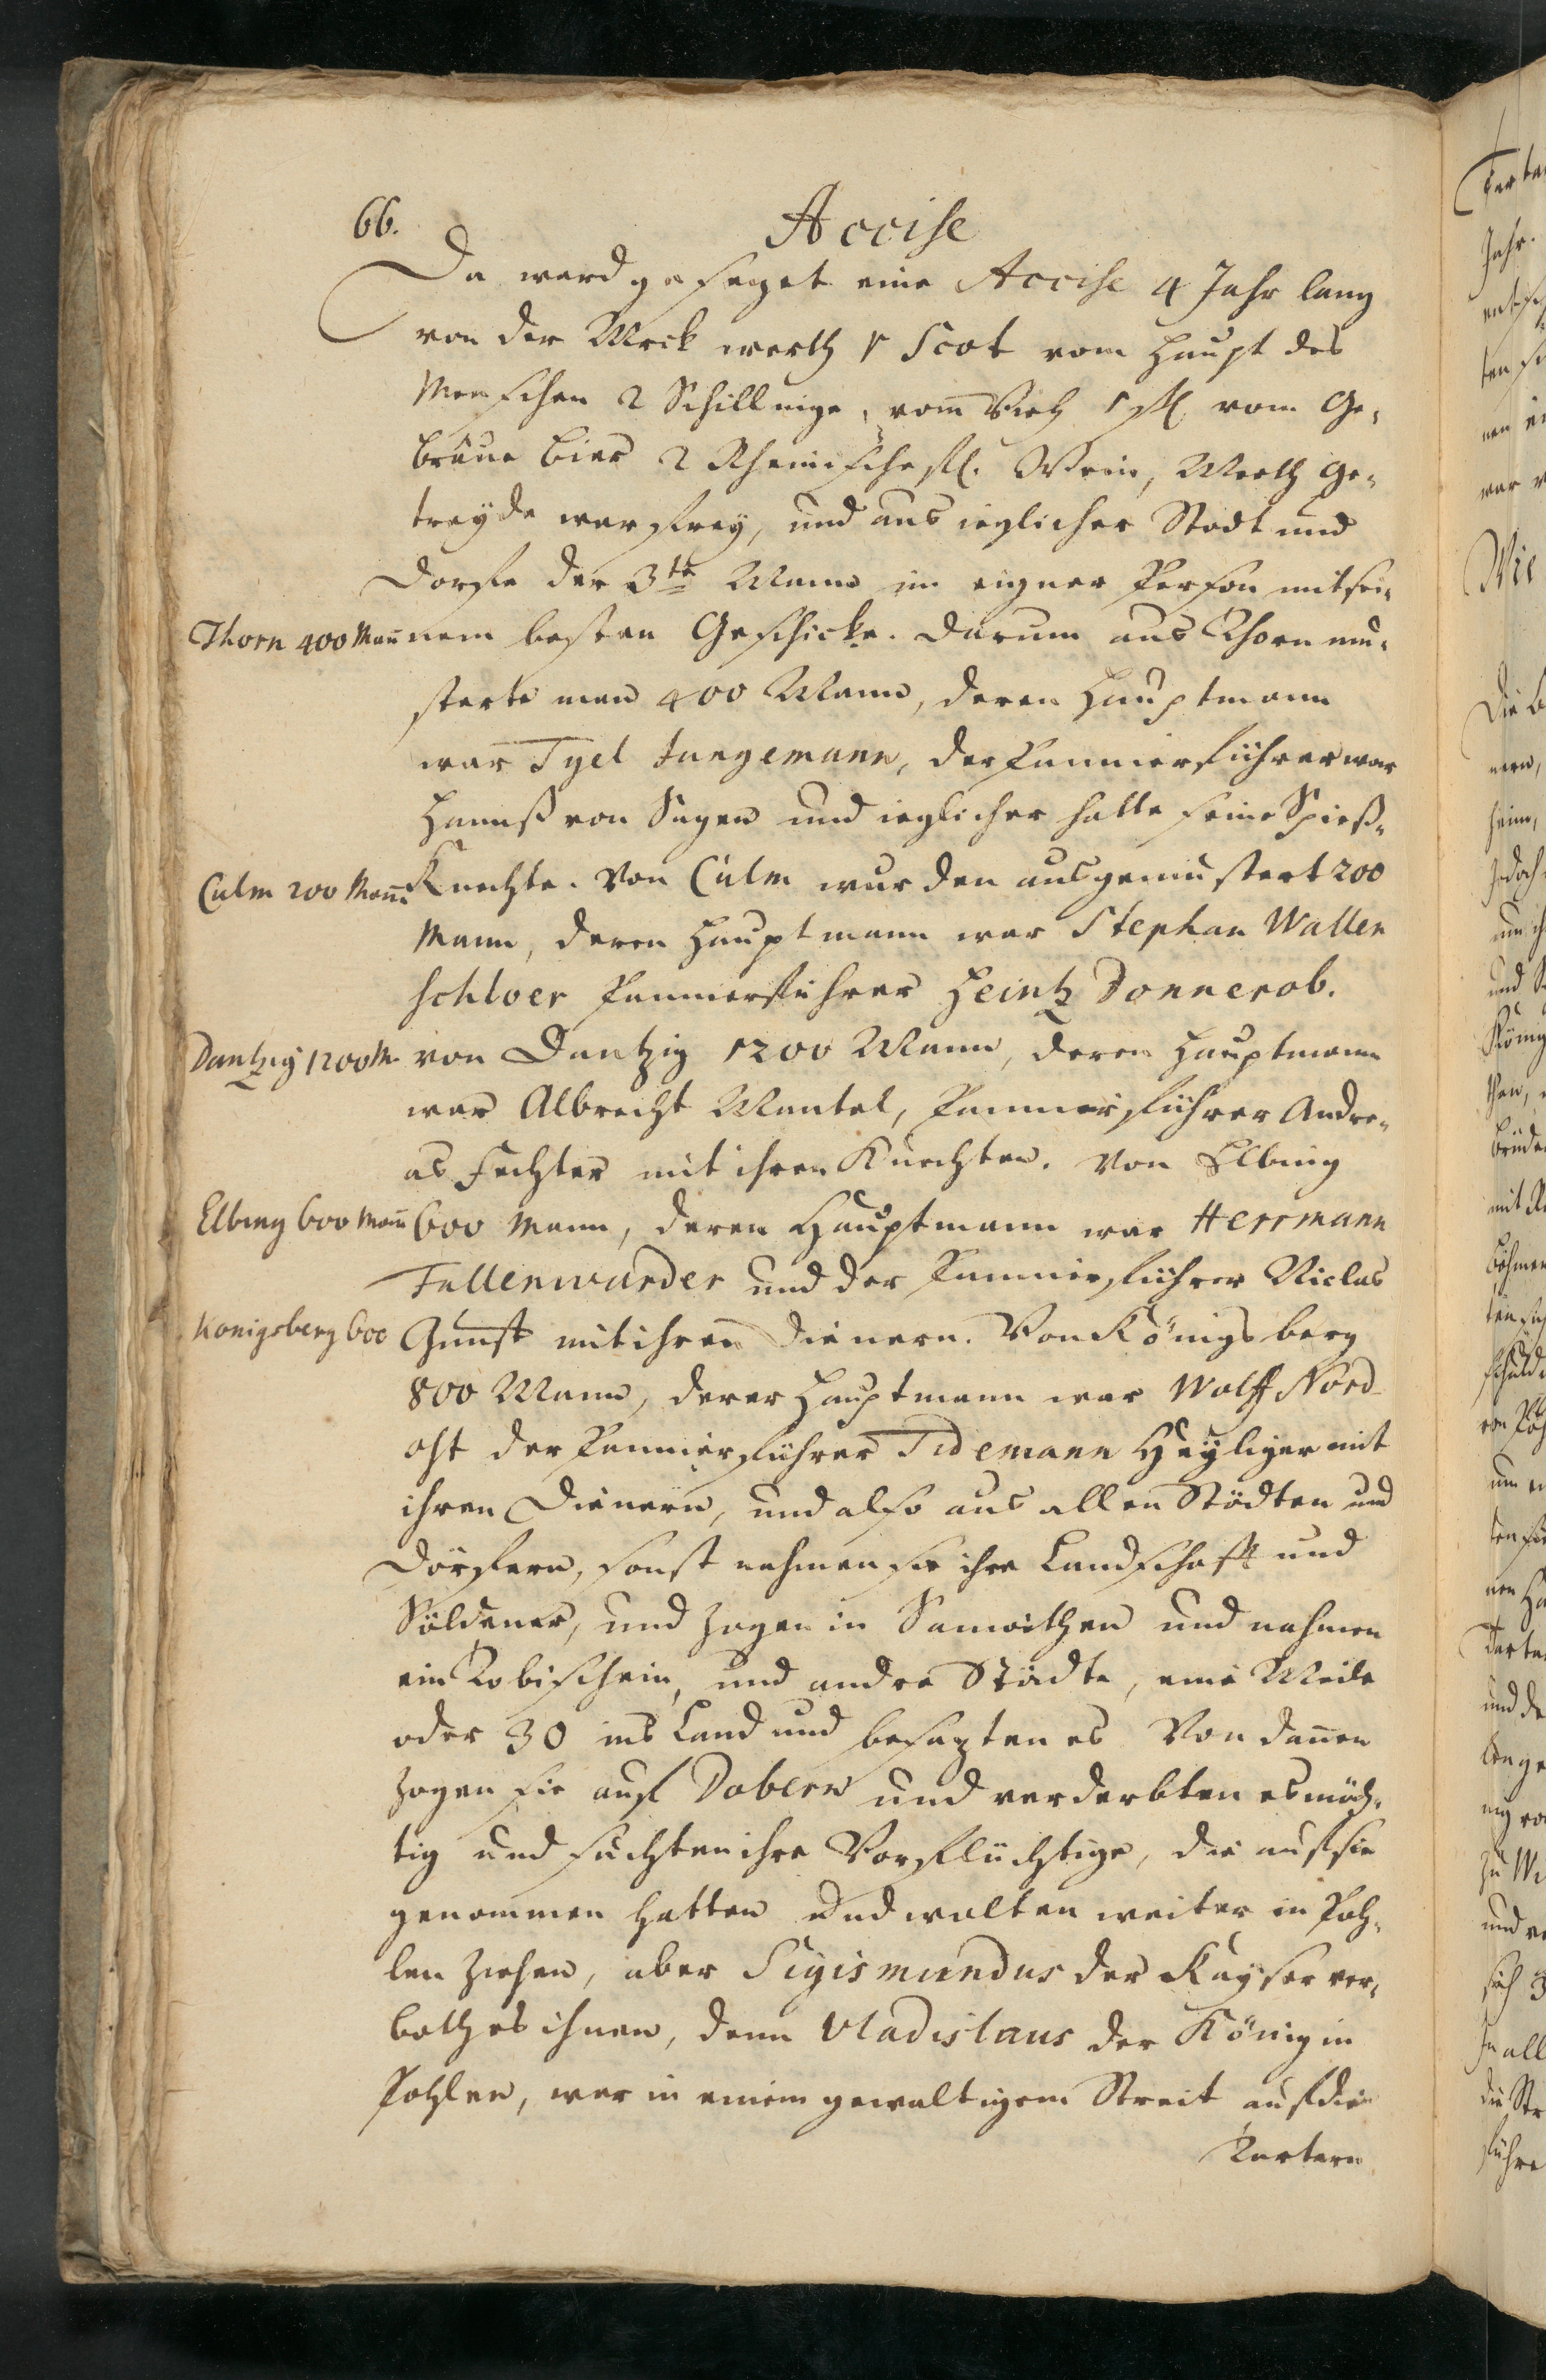 66.
Accise
Da ward gesezet eine Accise 4 Jahr lang
von der Mrck werth 1 Scot vom Haupt des
Menschen 2 Schillinge, vom Vieh 1 ßl. vom Ge-
bräue Bier 2 Rheinische fl. Wein, Meeth Ge-
treyde war frey, und aus ieglicher Stadt und
Dorfe der 3te Mann in eigner Person mit sei-
Thorn 400 Mañ
nem besten Geschicke. Darum aus Thorn mu-
sterte man 400 Mann, deren Hauptmann
war Tyel Jungemann, der Pannierführer war
Hannß von Sagen und ieglicher hatte seine Spieß-
Culm 200 Mañ
Knechte. Von Culm wurden ausgemustert 200
Mann, deren Hauptmann war Stephan Wallen
schloer Pannierführer Heintz Donnerob.
Dantzig 1200 M.
von Dantzig 1200 Mann, deren Hauptmann
war Albrecht Mantel, Pannierführer Andre-
as Fechter mit ihren Knechten. Von Elbing
Elbing 600 Mañ
600 Mann, deren Hauptmann war Herrmann
Fullenwarder und der Pannierführer Niclas
Konigsberg 600
Gunst mit ihren Dienern. Von Königsberg
800 Mann, derer Hauptmann war Wolff Nord-
ost der Pannierführer Tidemann Heyliger mit
ihren Dienern, und also aus allen Städten und
Dörfern, sonst nahmen sie ihre Landschaft und
Söldener, und zogen in Samaithen und nahmen
ein Robischein, und andre Städte, eine Meile
oder 30 ins Land und besazten es Von dañen
zogen sie auf Dobern und verderbten es mäch-
tig und suchten ihre Vorflüchtige, die auf sie
genommen hatten und wolten weiter in Poh-
len ziehen, aber Sigismundus der Kayser ver-
both es ihnen, denn Vladislaus der König in
Pohlen, war in einem gewaltigem Streit auf die
Tartern